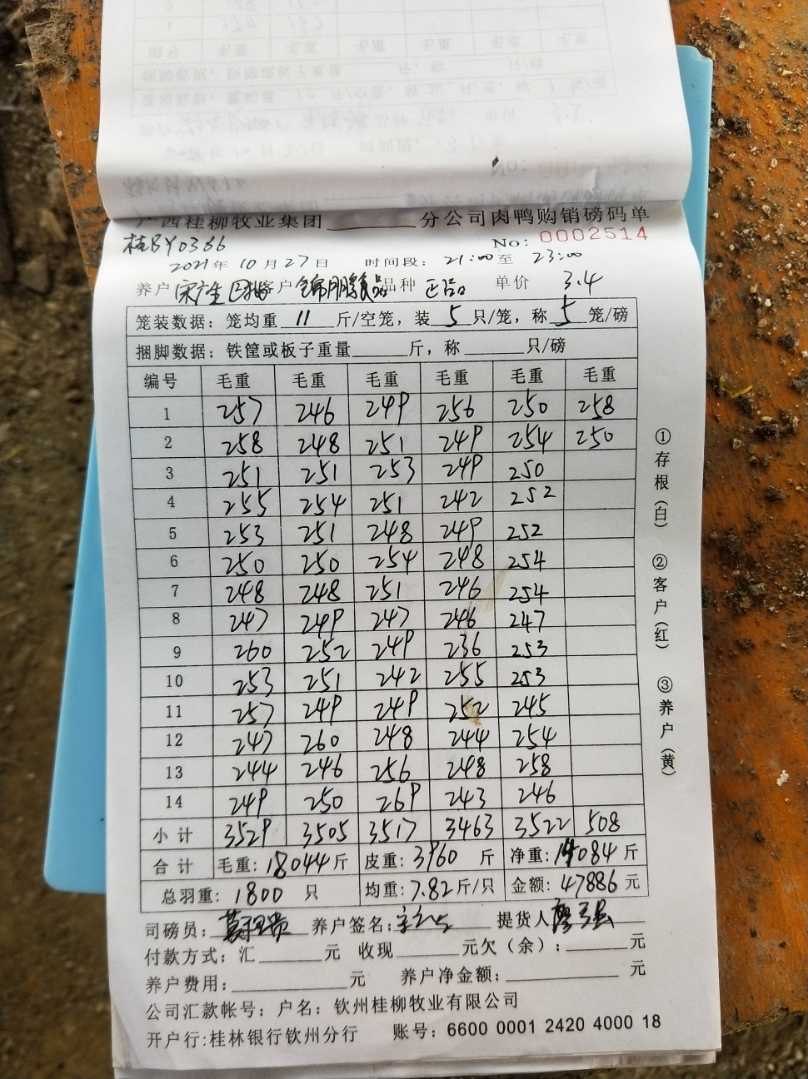 广西桂柳牧业集团______分公司肉鸭购销磅码单
桂BY0366 No: 0002514
2021年10月27日 时间段: 21:00至23:00
养户 客户 锦鹏食品 品种 正品 单价 3.4
笼装数据: 笼均重 11 斤/空笼, 装 5 只/笼, 称 5 笼/磅
捆脚数据: 铁筐或板子重量______斤, 称______只/磅
编号 毛重 毛重 毛重 毛重 毛重 毛重
1 257 246 249 256 250 258
2 258 248 251 249 254 250
3 251 251 253 249 250
4 255 254 251 242 252
5 253 251 248 249 252
6 250 250 254 248 254
7 248 248 251 246 254
8 247 249 247 246 247
9 260 252 249 236 253
10 253 251 242 255 253
11 257 249 249 252 245
12 247 260 248 244 254
13 244 246 256 248 258
14 249 250 269 243 246
小计 3529 3505 3517 3463 3522 508
合计 毛重: 18044斤 皮重: 3960 斤 净重: 14084斤
总羽重: 1800 只 均重: 7.82斤/只 金额: 47886元
司磅员: 养户签名: 提货人
付款方式: 汇______元 收现______元欠(余): ______元
养户费用: ______元 养户净金额: ______元
公司汇款帐号: 户名: 钦州桂柳牧业有限公司
开户行: 桂林银行钦州分行 账号: 6600 0001 2420 4000 18
①存根(白) ②客户(红) ③养户(黄)